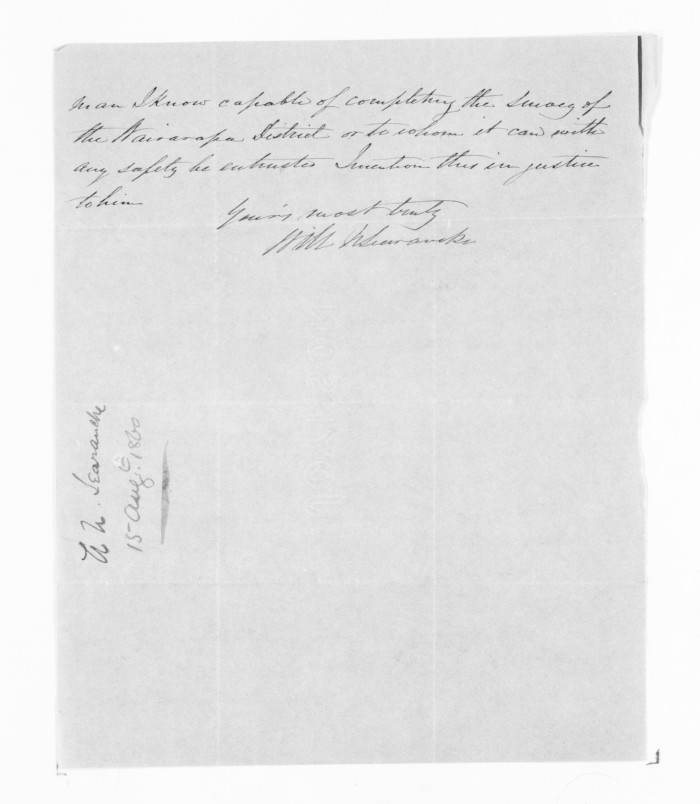 man I know capable of completing the survey of
the Wairarapa District or to whom it can with
any safety be entrusted I mention this in justice
to him
Yours most truly
Will N Searancke
W. N. Searancke
15 Augt 1860